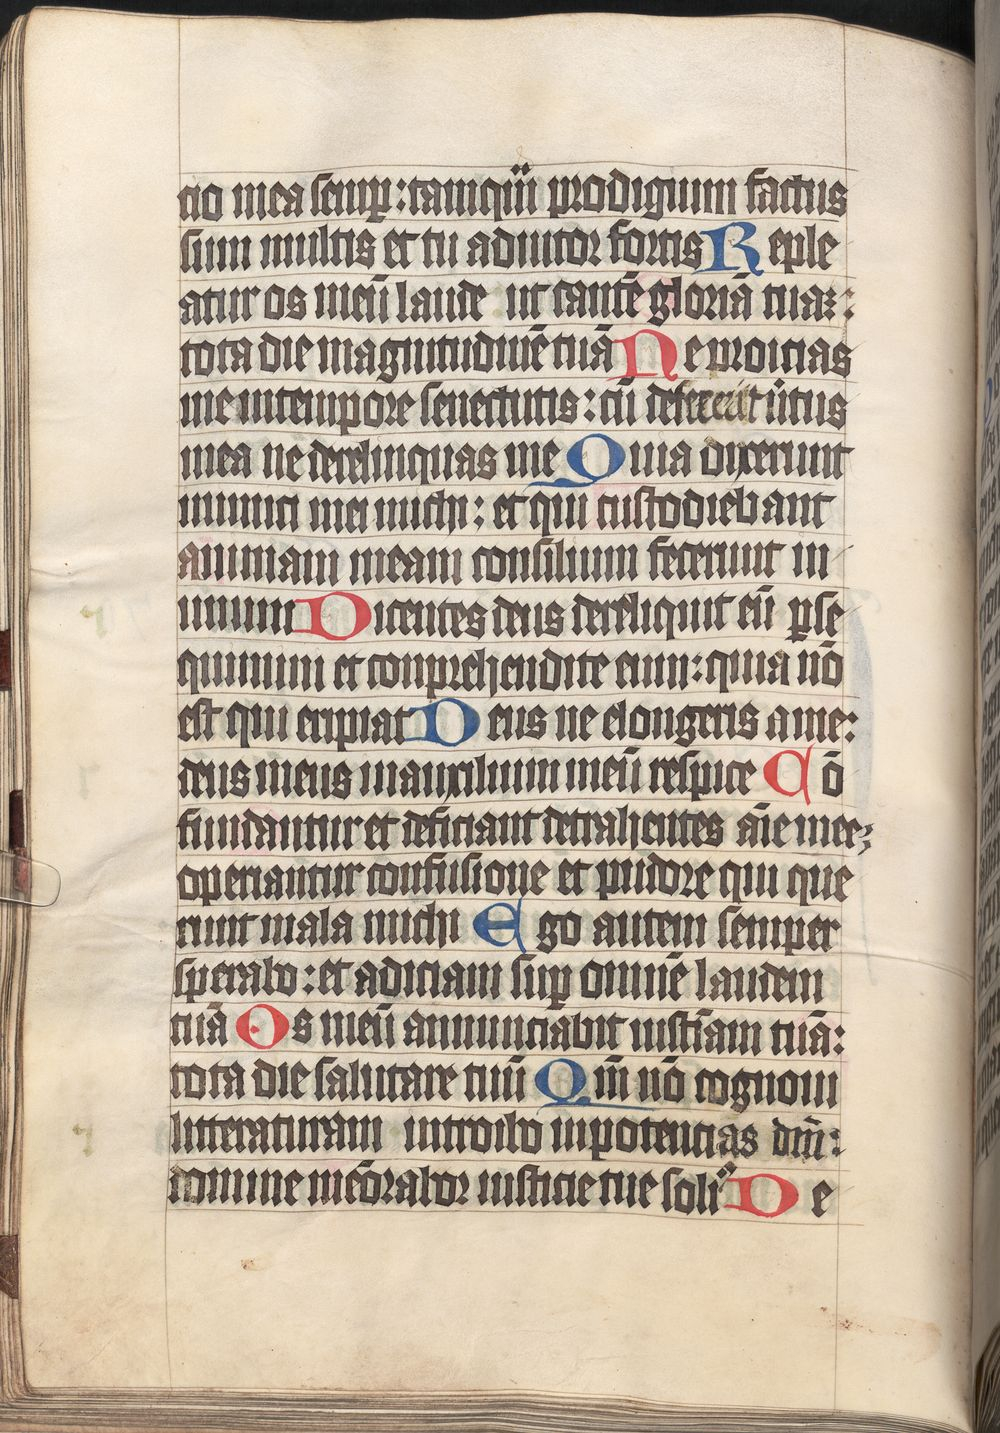 cio mea semp : tamqm̄ prodigium factus
sum multis et tu adiutor fortis Reple
atur os meū laude ut cantē gloriā tuaz :
tota die magnitudinē tuā Ne proicias
me intempore senectutis : cū defecerit uirtus
mea ne derelinquas me Quia dixerunt
inimici mei michi : et qui custodiebant
animam meam consilium fecerunt in
unum Dicentes deus dereliquit eū ꝑse
quimini et conprehendite eum : quia nō
est qui eripiat Deus ne elongeris a me :
deus meus inauxilium meū respice Cō
fundantur et deficiant detrahentes aīe mee ;
operiantur confusione et pudore qui que
runt mala michi Ego autem semper
sperabo : et adiciam suꝑ omnē laudem
tuā Os meū annunciabit iusticiam tuā :
tota die salutare tuū Qm̄ nō cognoui
litteraturam introibo inpotencias dn̄i :
domine memorabor iusticie tue soliꝰ De